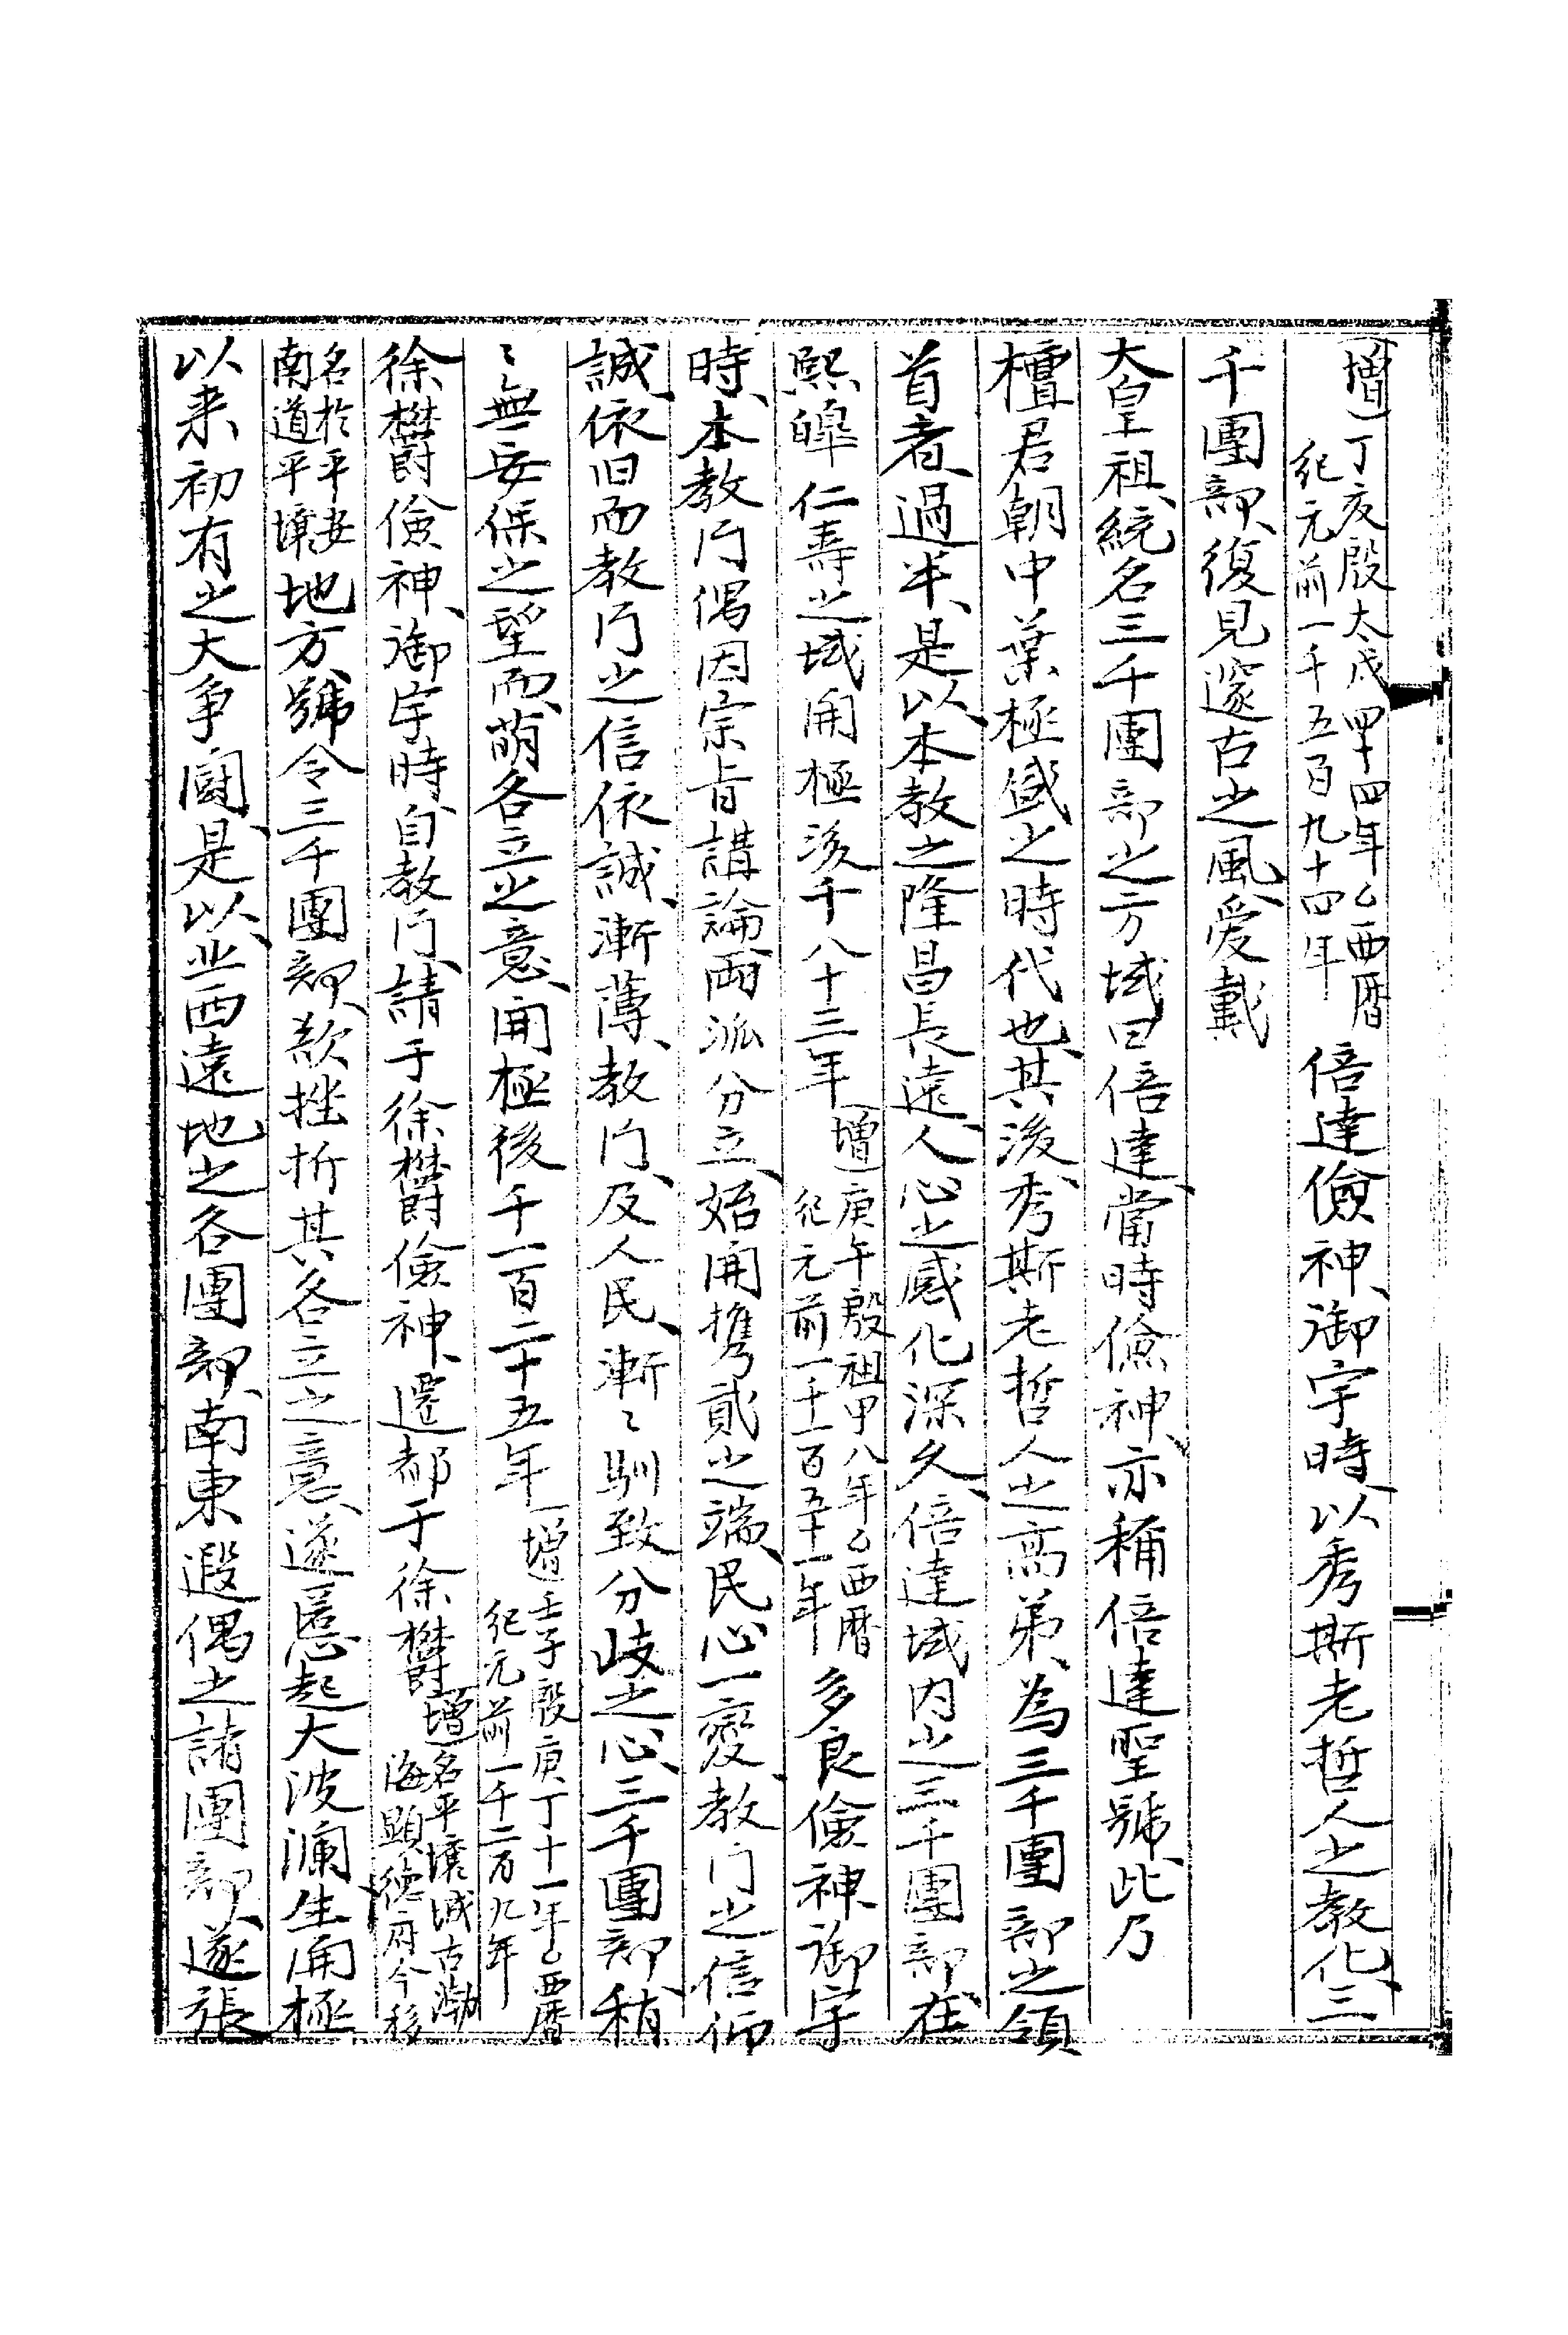 (增)丁亥殷太戊四十四年乙酉曆紀元前一千五百九十四年 倍達儉神、御宇時、以秀斯老哲人之教化、三
千團部、復見邃古之風、爱戴
大皇祖、統名三千團部之方域曰倍達、當時儉神、亦稱倍達聖號、此乃
檀君朝中葉極盛之時代也、其後、秀斯老哲人之高弟、為三千團部之領
首者、過半、是以、本教之隆昌長遠、人心之感化深久、倍達域内之三千團部、在
熙皥仁壽之域開極後千八十三年(增)庚午殷祖甲八年乙西曆紀元前一千一百五十一年 多良儉神御宇
時、本教門偶因宗旨講論兩派分立、始開携貳之端、民心一變、教門之信仰
誠、依旧而教門之信依誠、漸薄、教門、及人民、漸〻馴致分歧之心、三千團部、稍
〻無安保之望而、萌各立之意、開極後千一百二十五年(增)壬子殷庚丁十一年乙西曆紀元前一千二百九年
徐欝儉神、御宇時、自教門、請于徐欝儉神、遷都于徐欝(增)名平壤城古渤海顯德府今移
名於平安南道平壤地方、號令三千團部、欲挫折其各立之意、遂慝起大波瀾生開極
以来初有之大争鬪、是以、北西遠地之各團部、南東遐偶之諸團部、遂張